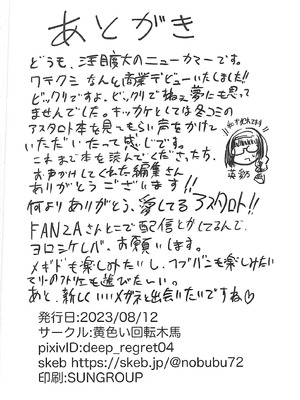 あとがき
どうも、注目度大のニューカマーです。
ワテクシ なんと商業デビューいたしました!!
ビックリですよ、ビックリで 夢にも思って
ませんでした。キッカケとしては冬コミの
アスタロト本を見てもらい声をかけて
いただいたって感じです。
これまで本を読んでくださった方、
お声かけしてくれた編集さん
ありがとうございます!!
何よりありがとう、愛してるアスタロト!!
FANZAさんとこで配信とかしてるんで、
ヨロシケレバ、お願いします。
メギドも楽しみたいし、
も楽しみたい
のアトリエも遊びたいしぃ。
あと、新しいいいメガネと出会いたいですね♡
発行日:2023/08/12
サークル:黄色い回転木馬
pixivID:deep_regret04
skeb https://skeb.jp/@nobubu72
印刷:SUNGROUP